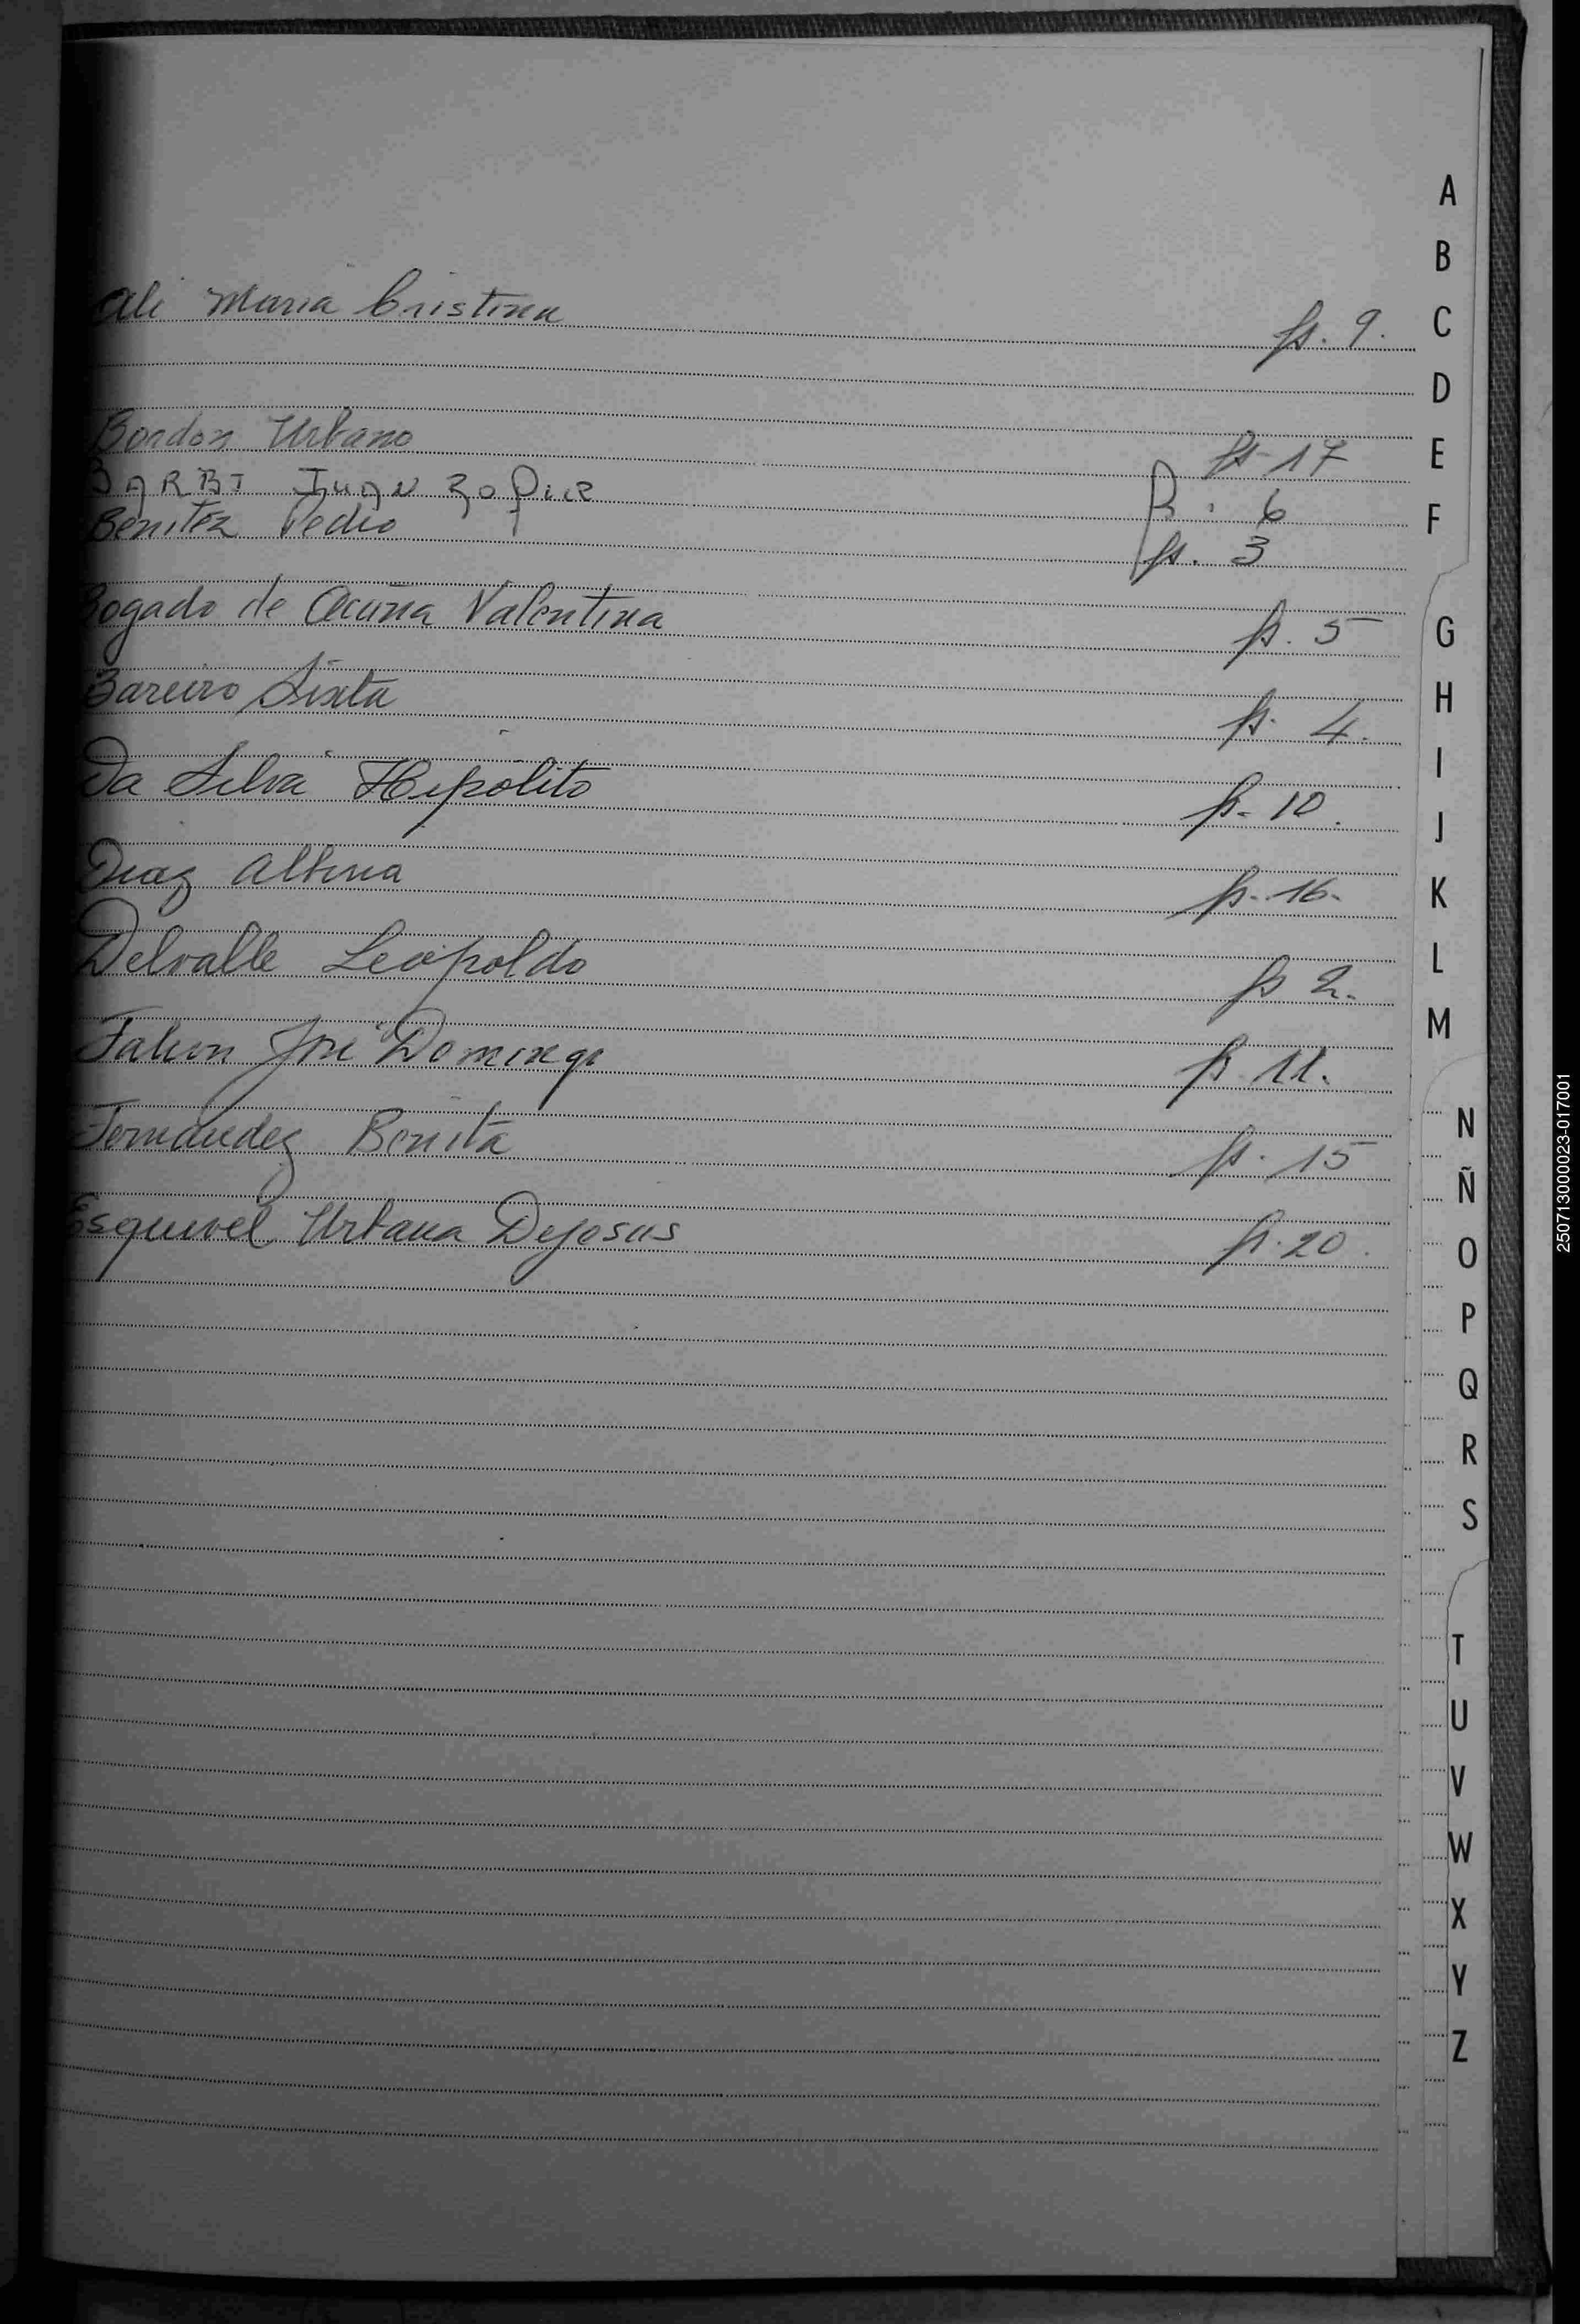 Ali Maria Cristina fs. 9.
Bordon Urbano fs. 17
BARBI JUAN fs. 6
Benitez Pedro fs. 3
Bogado de Acuña Valentina fs. 5
Bareiro Sixta fs. 4.
Da Silva Hipólito fs. 10.
Diaz Albina fs. 16.
Delvalle Leopoldo fs 2.
José Domingo fs 11.
Fernandez Benita fs. 15
Esquivel Urbana Dejesus fs. 20.
A
B
C
D
E
F
G
H
I
J
K
L
M
N
Ñ
O
P
Q
R
S
T
U
V
W
X
Y
Z
250713000023-017001